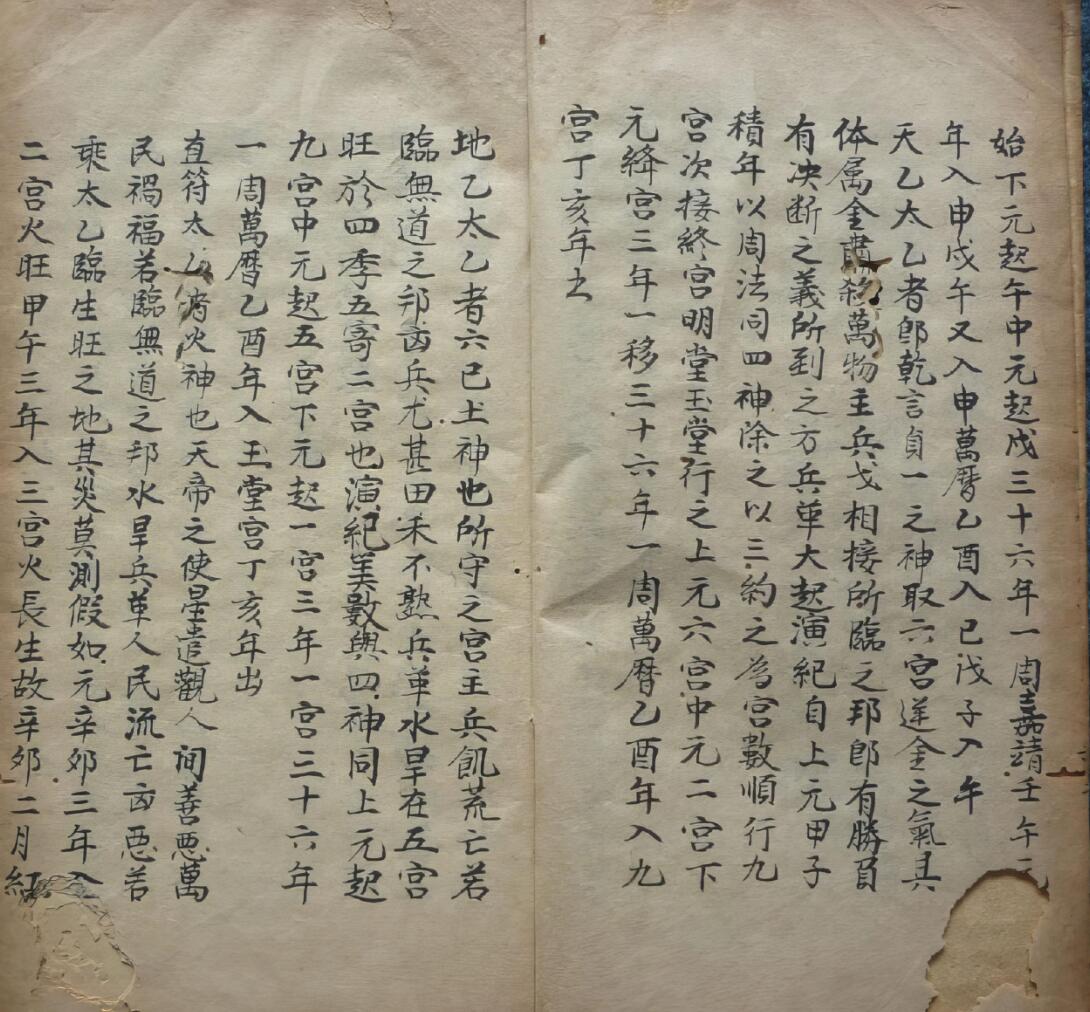 始下元起午中元起戌三十六年一周嘉靖壬午元
年入申戌午又入申萬曆乙酉入巳戊子入午
天乙太乙者即乾言貞一之神取六宫逆金之氣具
体属金肅殺萬物主兵戈相接所臨之邦即有勝負
有决断之義所到之方兵革大起演紀自上元甲子
積年以周法同四神除之以三約之為宫數順行九
宫次接終宫明堂玉堂行之上元六宫中元二宫下
元絳宫三年一移三十六年一周萬曆乙酉年入九
宫丁亥年
地乙太乙者六已土神也所守之宫主兵飢荒亡若
臨無道之邦凶兵尤甚田禾不熟兵革水旱在五宫
旺於四季五寄二宫也演紀筭數與四神同上元起
九宫中元起五宫下元起一宫三年一宫三十六年
一周萬曆乙酉年入玉堂宫丁亥年出
直符太乙者火神也天帝之使星遣觀人间善恶萬
民禍福若臨無道之邦水旱兵革人民流亡凶恶若
乘太乙臨生旺之地其災莫測假如元辛夘三年入
二宫火旺甲午三年入三宫火長生故辛夘二月紅